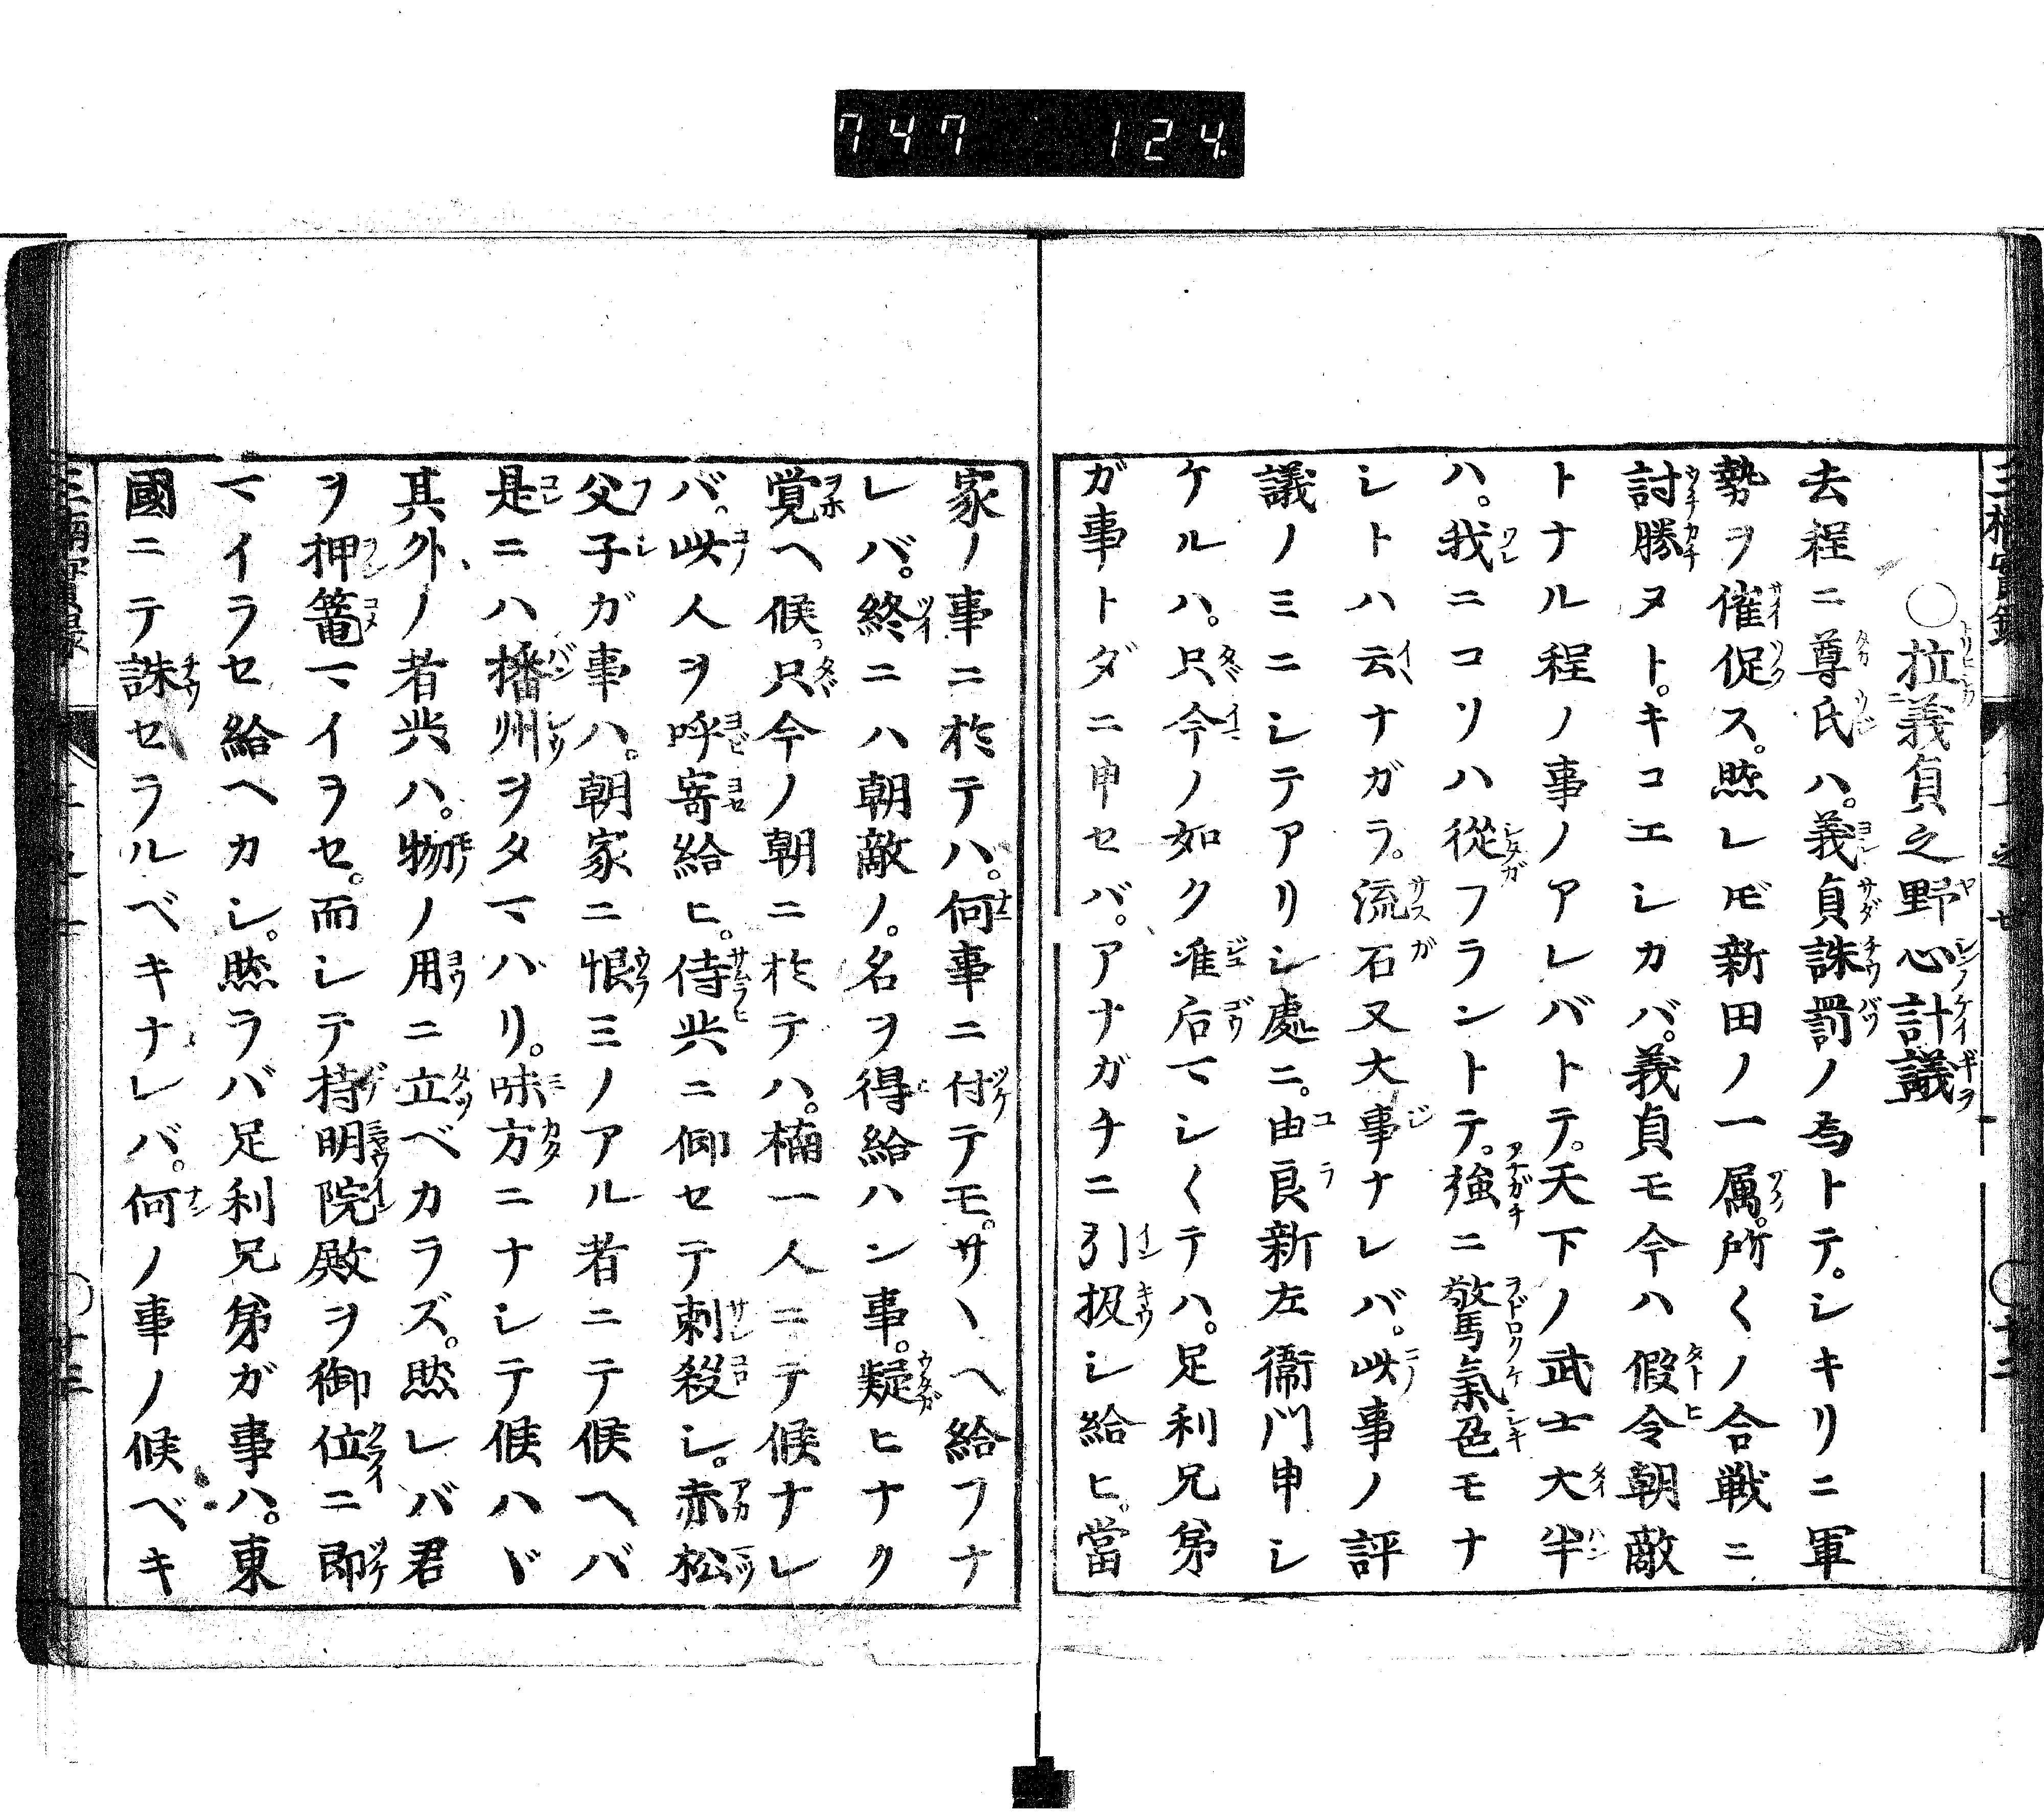 747 124
〇拉義貞之野心計議
去程ニ尊氏ハ。義貞誅罰ノ為トテ。シキリニ軍
勢ヲ催促ス。然レ𪜈新田ノ一属。所〱ノ合戦ニ
討勝ヌト。キコエシカバ。義貞モ今ハ假令朝敵
トナル程ノ事ノアレバトテ。天下ノ武士大半
ハ。我ニコソハ從フラントテ。強ニ驚氣色モナ
シトハ云ナガラ。流石又大事ナレバ。此事ノ評
議ノミニシテアリシ處ニ。由良新左衞門申シ
ケルハ。只今ノ如ク准后マシ〱テハ。足利兄弟
ガ事トダニ申セバ。アナガチニ引扱シ給ヒ。當
家ノ事ニ於テハ。何事ニ付テモ。サヽヘ給フナ
レバ。終ニハ朝敵ノ。名ヲ得給ハン事。疑ヒナク
覚ヘ候。只今ノ朝ニ於テハ。楠一人ニテ候ナレ
バ。此人ヲ呼寄給ヒ。侍共ニ仰セテ刺殺シ。赤松
父子ガ事ハ。朝家ニ恨ミノアル者ニテ候ヘバ
是ニハ播州ヲタマハリ。味方ニナシテ候ハヾ
其外ノ者共ハ。物ノ用ニ立ベカラズ。然レバ君
ヲ押篭マイヲセ。而シテ持明院殿ヲ御位ニ即
マイラセ給ヘカシ。然ラバ足利兄弟ガ事ハ。東
國ニテ誅セラルベキナレバ。何ノ事ノ候ベキ